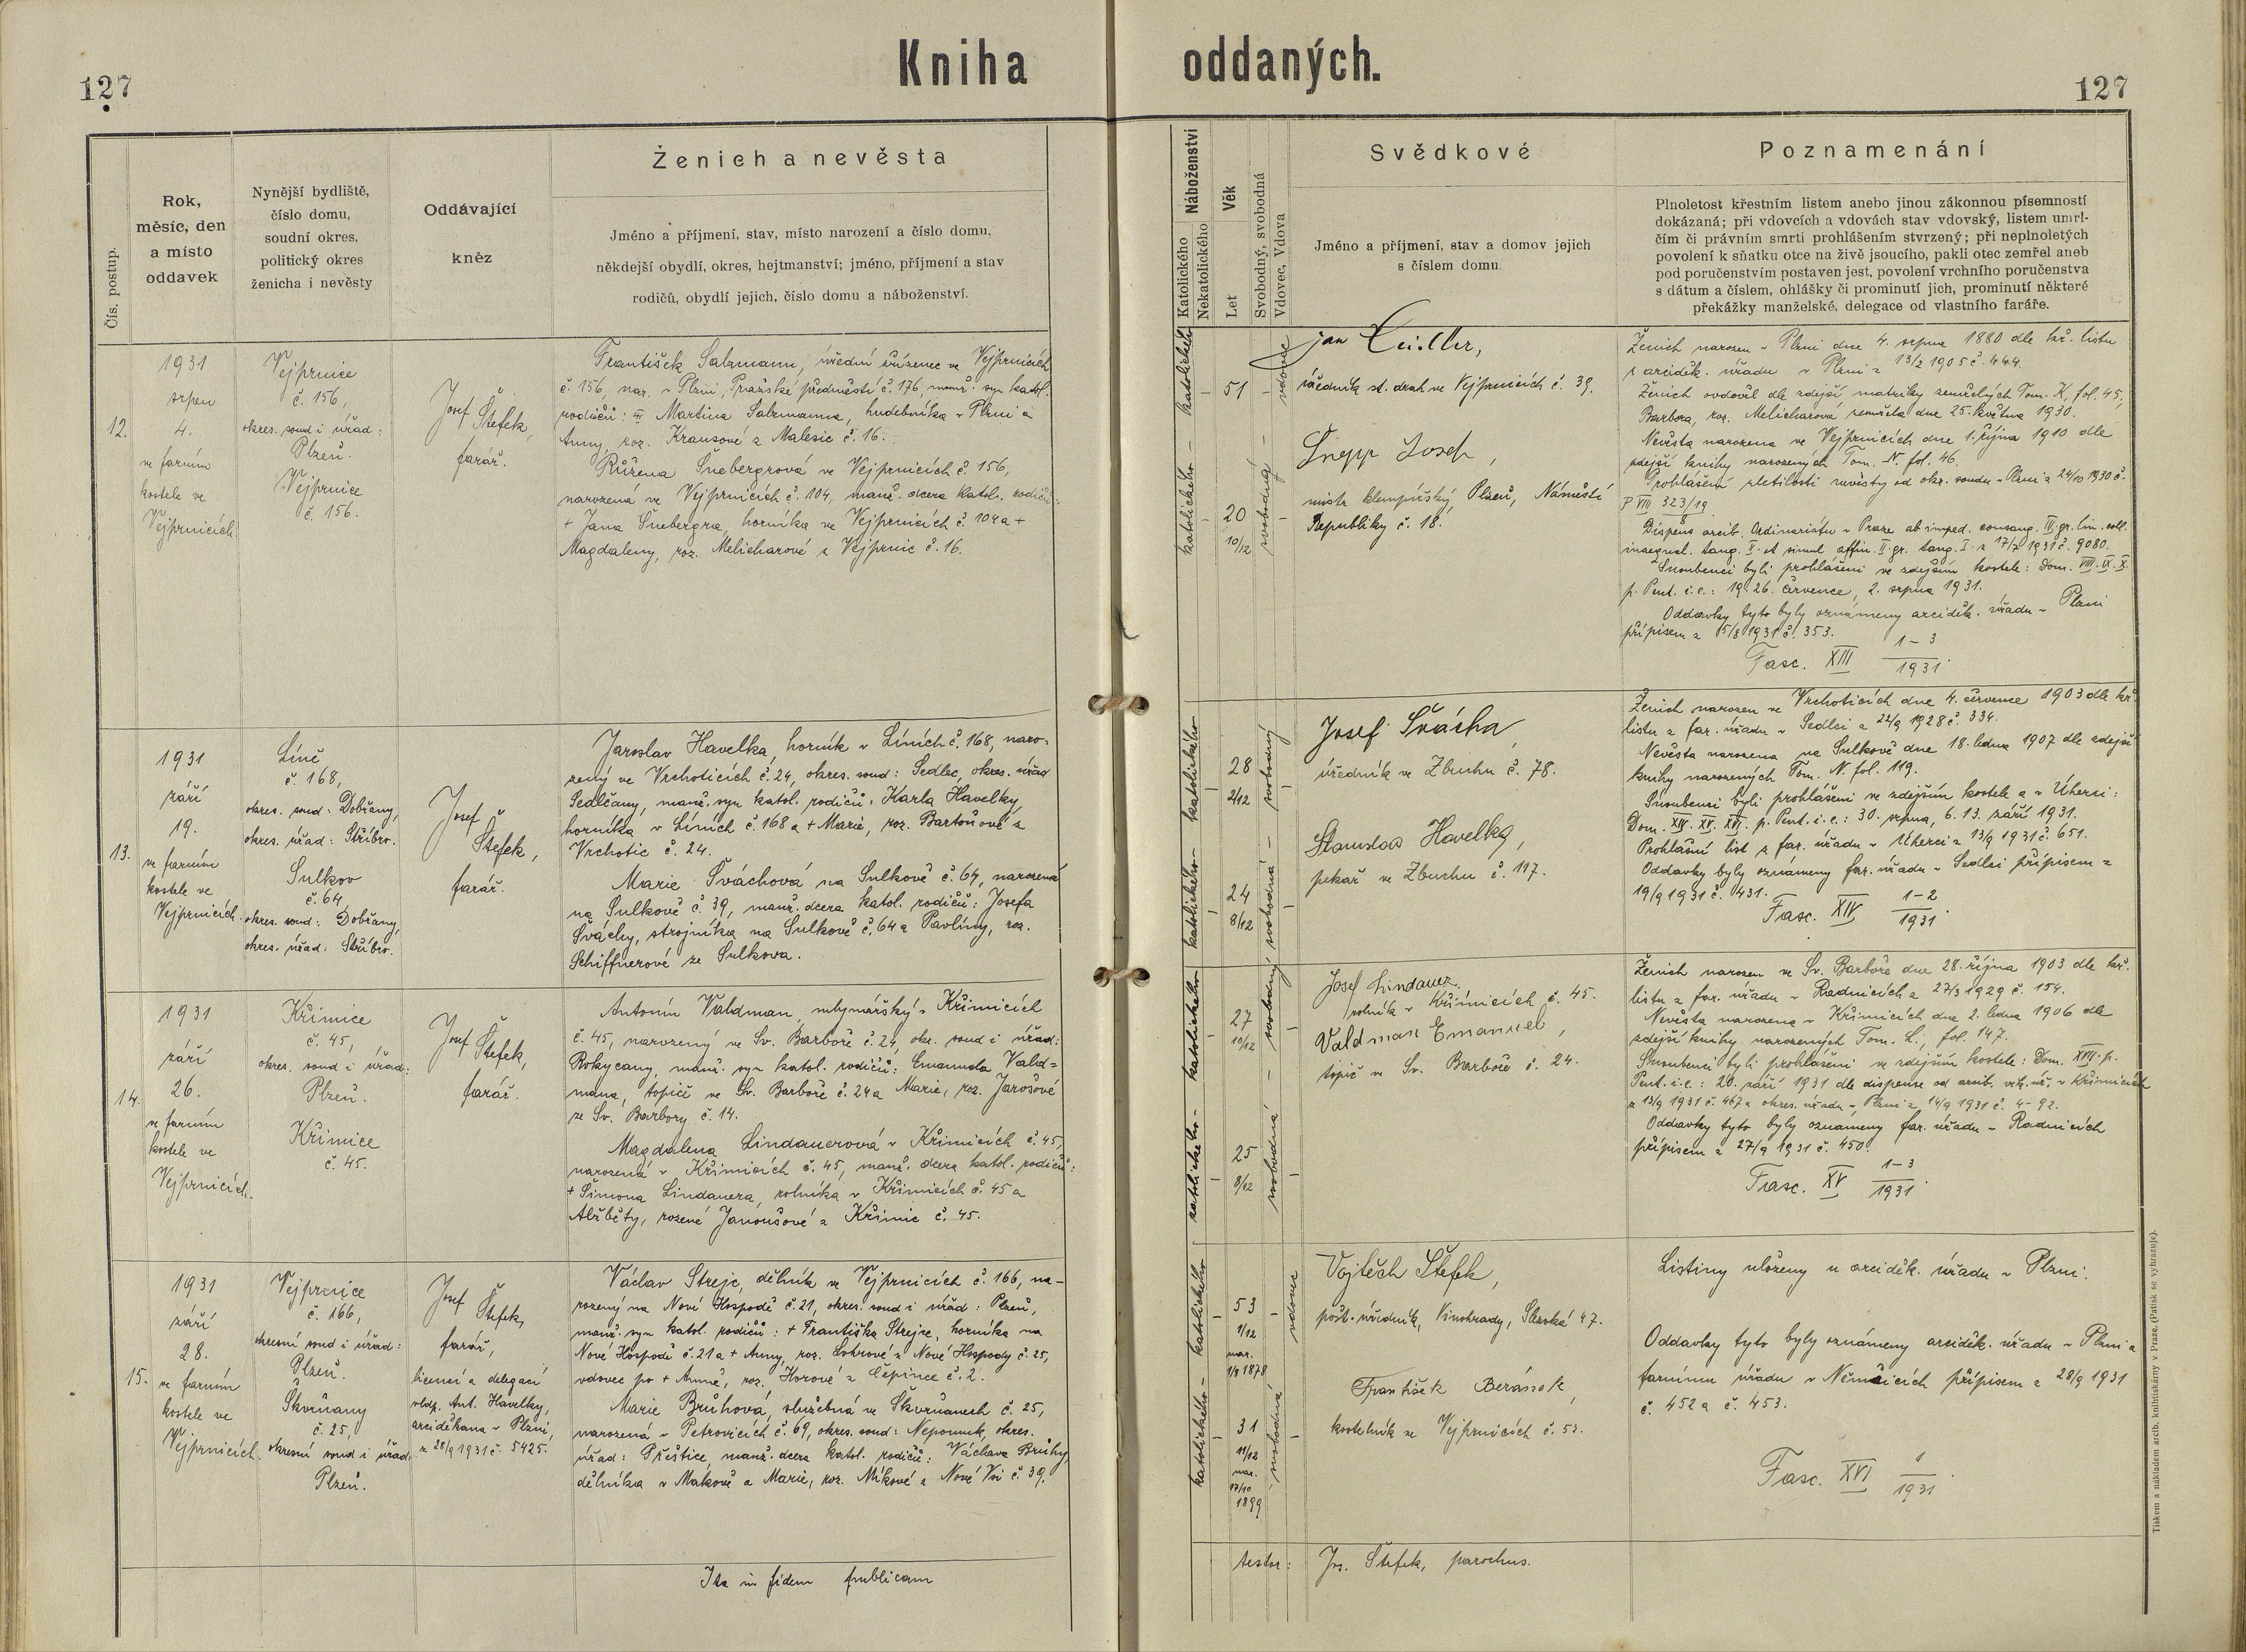 127
Kniha oddaných.
127
Čís. postup.
Rok,
měsíc, den
a místo
oddavek
Nynější bydliště,
číslo domu,
soudní okres,
politický okres
ženicha i nevěsty
Oddávající
kněz
Ženich a nevěsta
Jméno a příjmení, stav, místo narození a číslo domu,
někdejší obydlí, okres, hejtmanství; jméno, příjmení a stav
rodičů, obydlí jejich, číslo domu a náboženství.
Náboženství
Katolického
Nekatolického
Věk
Let
Svobodný, svobodná
Vdovec, Vdova
Svědkové
Jméno a příjmení, stav a domov jejich
s číslem domu.
Poznamenání
Plnoletost křestním listem anebo jinou zákonnou písemností
dokázaná; při vdovcích a vdovách stav vdovský, listem umrl-
čím či právním smrti prohlášením stvrzený; při neplnoletých
povolení k sňatku otce na živě jsoucího, pakli otec zemřel aneb
pod poručenstvím postaven jest, povolení vrchního poručenstva
s dátum a číslem, ohlášky či prominutí jich, prominutí některé
překážky manželské, delegace od vlastního faráře.
12.
1931
srpen
4.
ve farním
kostele ve
Vejprnicích.
Vejprnice
č. 156,
okres. soud i úřad:
Plzeň.
Vejprnice
č. 156.
Josef Štefek,
farář.
František Salzmann, úřední zřízenec ve Vejprnicích
č. 156, nar. v Plzni, Pražské předměstí č. 176, manž. syn katol.
rodičů: Martina Salzmanna, hudebníka v Plzni a
Anny, roz. Krausové z Malesic č. 16.
Růžena Šnebergrová ve Vejprnicích č. 156,
narozená ve Vejprnicích č. 104, manž. dcera katol. rodičů:
+ Jana Šnebergra, horníka ve Vejprnicích č. 104 a +
Magdaleny, roz. Melicharové z Vejprnic č. 16.
katolického
51
vdovec
katolického
20
10/12
svobodná
Jan
úředník st. drah ve Vejprnicích č. 39.
Josef,
mistr klempířský, Plzeň, Náměstí
Republiky č. 18.
Ženich narozen v Plzni dne 4. srpna 1880 dle kř. listu
z arciděk. úřadu v Plzni z 13/2 1905 č. 444.
Ženich ovdověl dle zdejší matriky zemřelých Tom. K, fol. 45,
Barbora, roz. Melicharová zemřela dne 25. května 1930.
Nevěsta narozena ve Vejprnicích dne 1. října 1910 dle
zdejší knihy narozených Tom. N. fol. 46.
Prohlášení zletilosti nevěsty od okr. soudu v Plzni z 24/10 1930 č.
P VIII 323/19
Dispens arcib. Ordinariátu v Praze ab imped. consang. III. gr. lin. coll.
inaequal. tang. II. et simul affin. II. gr. tang. I. z 17/7 1931 č. 9080.
Snoubenci byli prohlášeni ve zdejším kostele: Dom. VIII. IX. X.
p. Pent. i.e.: 19. 26. července, 2. srpna 1931.
Oddavky tyto byly oznámeny arciděk. úřadu v Plzni
přípisem z 5/8 1931 č. 353.
Fasc. XIII 1-3
1931.
13.
1931
září
19.
ve farním
kostele ve
Vejprnicích.
Líně
č. 168,
okres. soud: Dobřany,
okres. úřad: Stříbro.
Sulkov
č. 64,
okres. soud: Dobřany,
okres. úřad: Stříbro.
Josef
Štefek,
farář.
Jaroslav Havelka, horník v Líních č. 168, naro-
zený ve Vrchoticích č. 24, okres. soud: Sedlec, okres. úřad
Sedlčany, manž. syn katol. rodičů: Karla Havelky,
horníka v Líních č. 168 a + Marie, roz. Bartoňové z
Vrchotic č. 24.
Marie Šváchová na Sulkově č. 64, narozená
na Sulkově č. 39, manž. dcera katol. rodičů: Josefa
Šváchy, strojníka na Sulkově č. 64 a Pavlíny, roz.
Schiffnerové ze Sulkova.
katolického
28
2/12
svobodný
katolického
24
8/12
svobodná
Josef Švácha,
úředník ve Zbuchu č. 78.
Stanislav Havelka,
pekař ve Zbuchu č. 117.
Ženich narozen ve Vrchoticích dne 4. července 1903 dle kř.
listu z far. úřadu v Sedlci z 22/9 1928 č. 334.
Nevěsta narozena na Sulkově dne 18. ledna 1907 dle zdejší
knihy narozených Tom. N. fol. 119.
Snoubenci byli prohlášeni ve zdejším kostele a v Úherci:
Dom. XIV. XV. XVI. p. Pent. i.e.: 30. srpna, 6. 13. září 1931.
Prohlašní list z far. úřadu v Úherci z 13/9 1931 č. 651.
Oddavky byly oznámeny far. úřadu v Sedlci přípisem z
19/9 1931 č. 431.
Fasc. XIV 1-2
1931.
14.
1931
září
26.
ve farním
kostele ve
Vejprnicích.
Křimice
č. 45,
okres. soud i úřad:
Plzeň.
Křimice
č. 45.
Josef Štefek,
farář.
Antonín Valdman, mlynářský v Křimicích
č. 45, narozený ve Sv. Barboře č. 24, okr. soud i úřad:
Rokycany, manž. syn katol. rodičů: Emanuela Vald-
mana, topiče ve Sv. Barboře č. 24 a Marie, roz. Jarošové
ze Sv. Barbory č. 14.
Magdalena Lindauerová v Křimicích č. 45,
narozená v Křimicích č. 45, manž. dcera katol. rodičů:
+ Šimona Lindauera, rolníka v Křimicích č. 45 a
Alžběty, rozené Janoušové z Křimic č. 45.
katolického
27
10/12
svobodný
katolického
25
8/12
svobodná
Josef Lindauer,
rolník v Křimicích č. 45.
Valdman Emanuel,
topič ve Sv. Barboře č. 24.
Ženich narozen ve Sv. Barboře dne 28. října 1903 dle kř.
listu z far. úřadu v Radnicích z 27/3 1929 č. 154.
Nevěsta narozena v Křimicích dne 2. ledna 1906 dle
zdejší knihy narozených Tom. L., fol. 147.
Snoubenci byli prohlášeni ve zdejším kostele: Dom. XVII. p.
Pent. i.e.: 20. září 1931 dle dispense od arcib. vik. úř. v Křimicích
z 13/9 1931 č. 467 a okres. úřadu v Plzni z 14/9 1931 č. 4-92.
Oddavky tyto byly oznámeny far. úřadu v Radnicích
přípisem z 27/9 1931 č. 450.
Fasc. XV 1-3
1931.
15.
1931
září
28.
ve farním
kostele ve
Vejprnicích.
Vejprnice
č. 166,
okresní soud i úřad:
Plzeň.
Škvrňany
č. 25,
okresní soud i úřad:
Plzeň.
Josef
Štefek,
farář,
licencí a delegací
vldp. Ant. Havelky,
arciděkana v Plzni,
z 28/9 1931 č. 5425.
Václav Strejc, dělník ve Vejprnicích č. 166, na-
rozený na Nové Hospodě č. 21, okres. soud i úřad: Plzeň,
manž. syn katol. rodičů: + Františka Strejce, horníka na
Nové Hospodě č. 21 a + Anny, roz. Lohrové z Nové Hospody č. 25,
vdovec po + Anně, roz. Horové z Čepince č. 2.
Marie Brůhová, služebná ve Škvrňanech č. 25,
narozená v Petrovicích č. 69, okres. soud: Nepomuk, okres.
úřad: Přeštice, manž. dcera katol. rodičů: Václava Brůhy,
dělníka v Makově a Marie, roz. Míkové z Nové Vsi č. 39.
katolického
53
1/12
nar.
1/8 1878
vdovec
katolického
31
11/12
nar.
17/10
1899
svobodná
Vojtěch Štefek,
pošt. úředník, Vinohrady, Slezská 47.
František Beránek,
kostelník ve Vejprnicích č. 53.
Listiny uloženy u arciděk. úřadu v Plzni.
Oddavky tyto byly oznámeny arciděk. úřadu v Plzni a
farnímu úřadu v Němčicích přípisem z 28/9 1931
č. 452 a č. 453.
Fasc. XVI 1
1931
Ita in fidem publicam
testor: Jos. Štefek, parochus.
Tiskem a nákladem arcib. knihtiskárny v Praze. (Patisk se vyhrazuje).